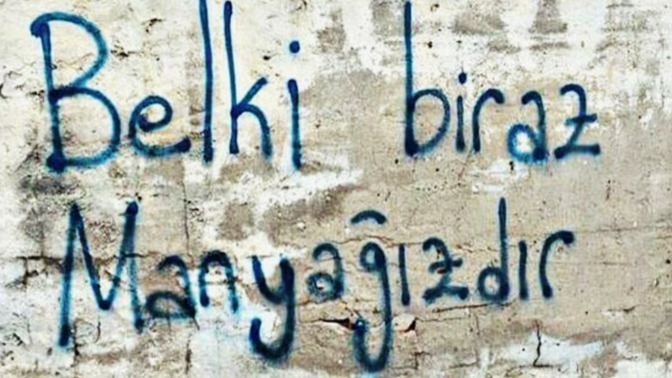 Belki biraz
Manyağızdır